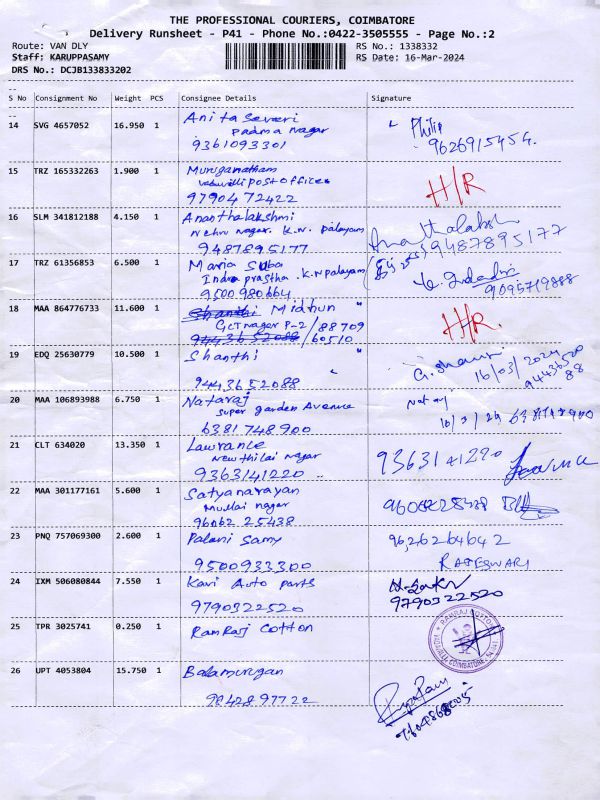 THE PROFESSIONAL COURIERS, COIMBATORE
Delivery Runsheet - P41 - Phone No.:0422-3505555 - Page No.:2
Route: VAN DLY RS No.: 1338332
Staff: KARUPPASAMY RS Date: 16-Mar-2024
DRS No.: DCJB133833202
S No Consignment No Weight PCS Consignee Details Signature
14 SVG 4657052 16.950 1 Anita Severi
Padma nagar
9361093301
Philip
9626915454.
15 TRZ 165332263 1.900 1 Muruganatham
post office
9790472422
H/R
16 SLM 341812188 4.150 1 Ananthalakshmi
Nehru nagar. K.N. Palayam
9487895177
9487895177
17 TRZ 61356853 6.500 1 Maria Suba
Indra prastha. K.N Palayam
9500980664
9095719888
18 MAA 864776733 11.600 1 Shanthi Midhun
GCT nagar P-2 / 88709
9443652088 / 60510
H/R.
19 EDQ 25630779 10.500 1 Shanthi
9443652088
G. Shanthi
16/03/2024
94436520
88
20 MAA 106893988 6.750 1 Nataraj
Super garden Avenue
6381748900
21 CLT 634020 13.350 1 Lawrance
New thilai nagar
9363141220
9363141220
22 MAA 301177161 5.600 1 Satyanarayan
Mullai nagar
96062 25438
23 PNQ 757069300 2.600 1 Palani Samy
9500933300
9626264642
RAJESWARI
24 IXM 506080844 7.550 1 Kavi Auto parts
9790322520
9790322520
25 TPR 3025741 0.250 1 Ramraj Cotton
RAMRAJ COTTON
26 UPT 4053804 15.750 1 Balamurugan
9842897722